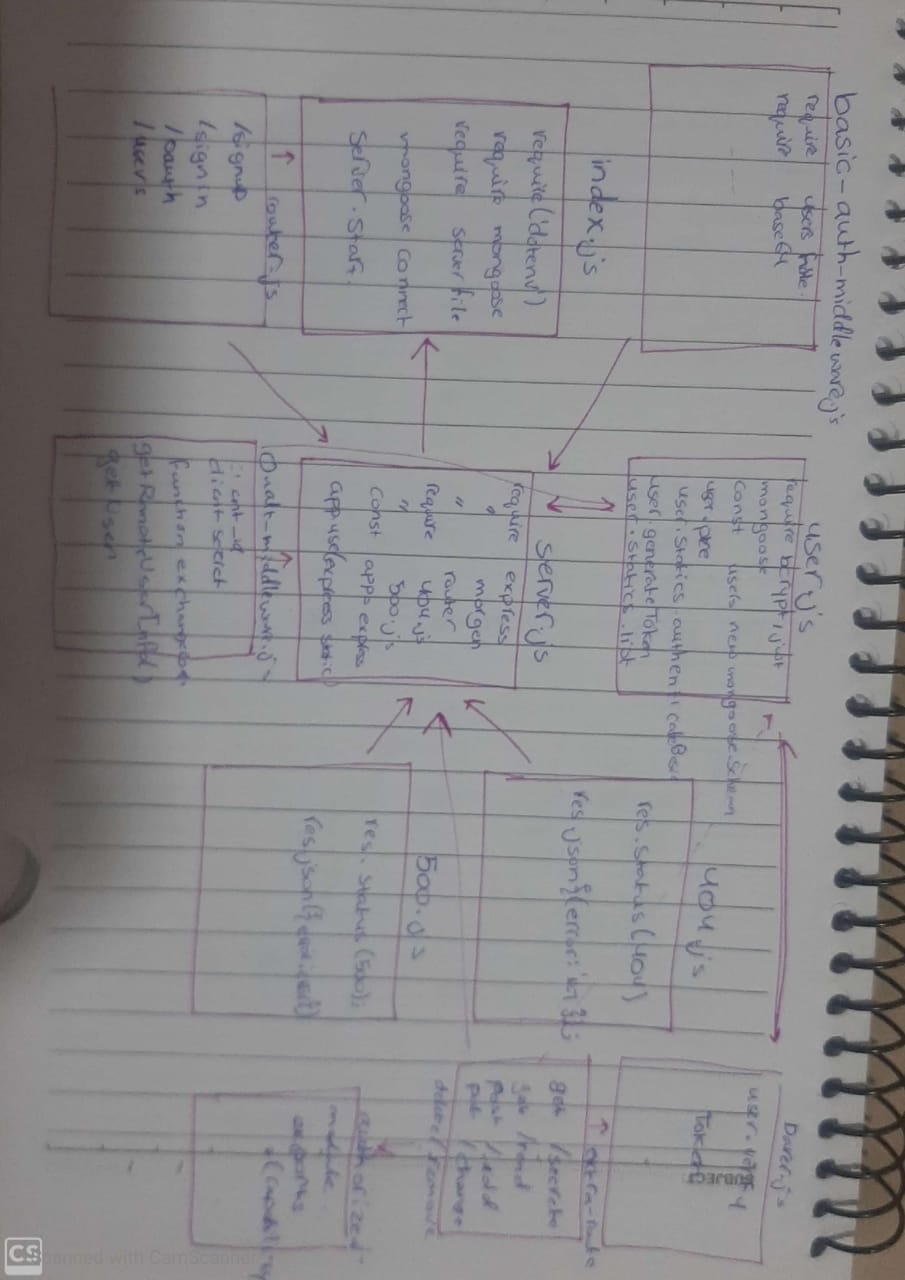 basic-auth-middleware.js
require users file.
require base64
index.js
require('dotenv')
require mongoose
require server file
mongoose connect
Server.Start.
router.js
/signup
/signin
/oauth
/users
user.js
require bcrypt, jwt
mongoose
const users new mongoose.Schema
user.pre
user.statics.authenticateBasic
user.generateToken
user.statics.list
server.js
require express
" morgen
require router
" 404.js
500.js
const app = express
app.use(express static)
Oauth-middleware.js
client_id
client secret
function exchange
getRemoteUserInfo()
getUser
404.js
res.status(404)
res.json
500.js
res.status(500);
res.json({error:
user.verify
Token
SUBJECT
extra-route
get /secrets
get /read
post /add
put /change
delete/remove
authorized.
module.
exports
CS Scanned with CamScanner